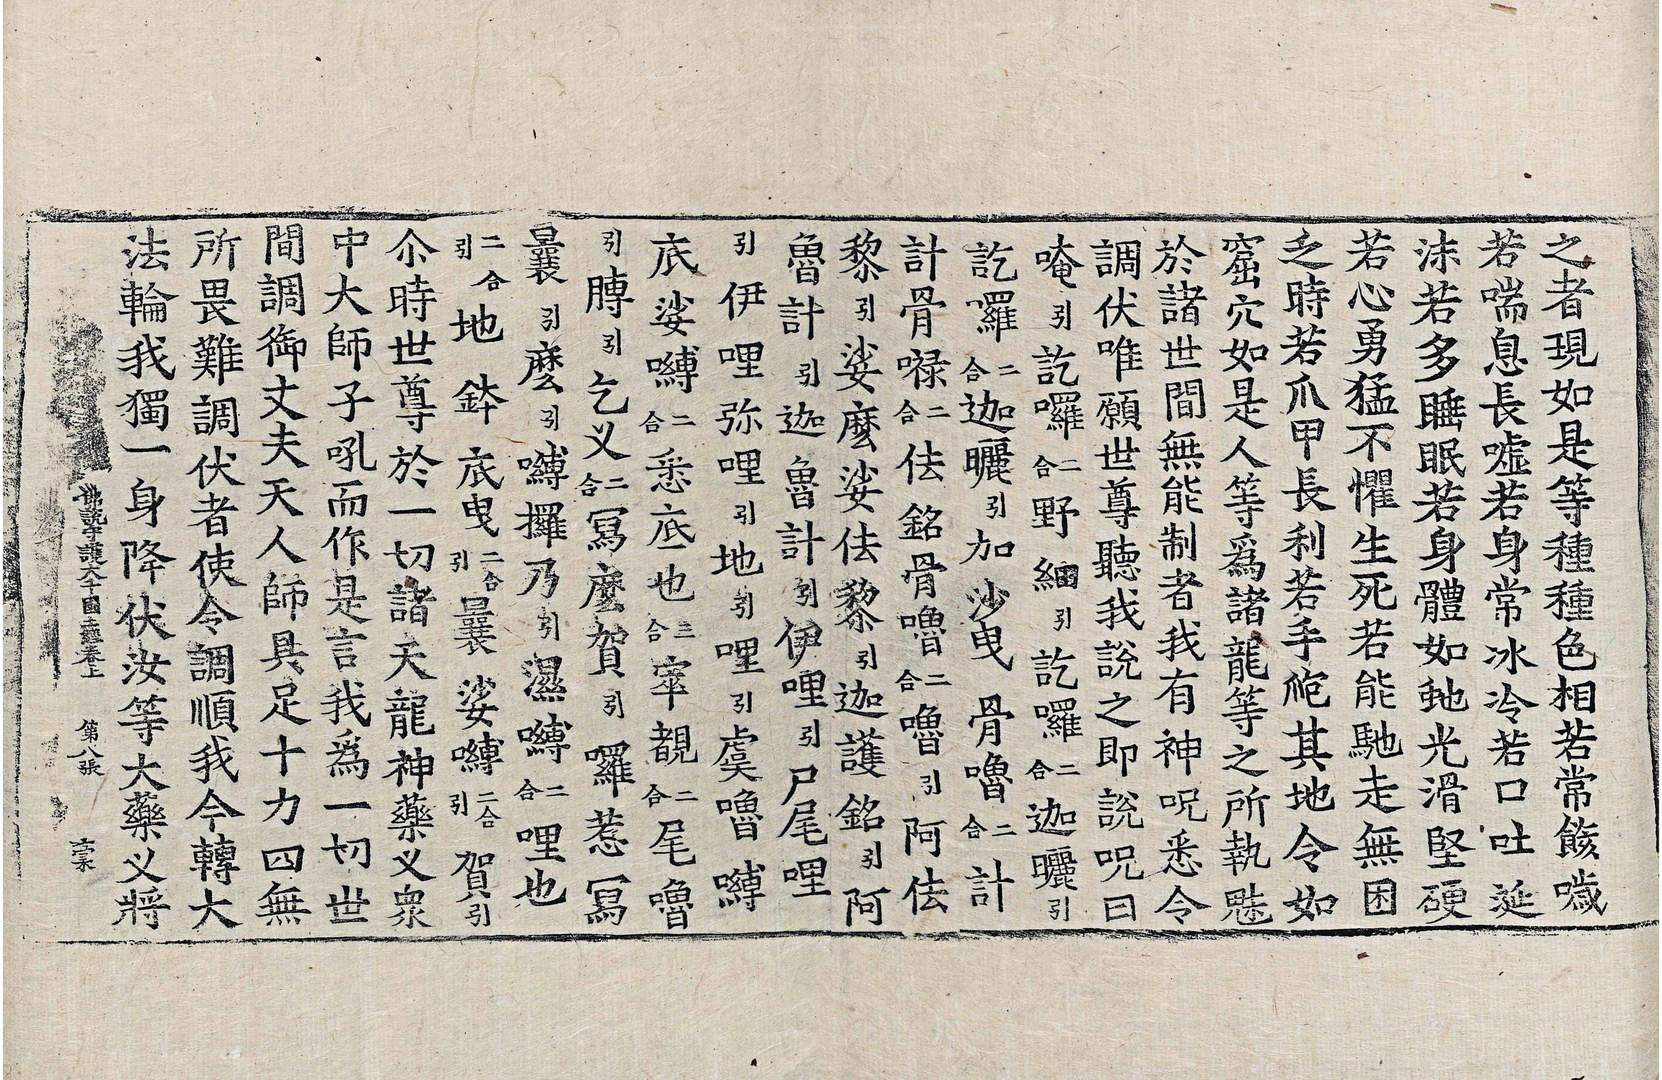 之者現如是等種種色相若常餩噦
若喘息長噓若身常冰冷若口吐涎
沫若多睡眠若身體如虵光滑堅硬
若心勇猛不懼生死若能馳走無困
乏時若爪甲長利若手爮其地令如
窟穴如是人等爲諸龍等之所執魅
於諸世間無能制者我有神呪悉令
調伏唯願世尊聽我說之即說呪曰
唵引訖囉二合野細引訖囉二合迦囇引
訖囉二合迦囇引加沙曳骨嚕二合計
計骨䘵二合佉銘骨嚕二合嚕引阿佉
黎引娑麼娑佉黎引迦護銘引阿
魯計引迦魯計引伊哩引尸尾哩
引伊哩弥哩引地引哩引虞嚕嚩
底娑嚩二合悉底也三合宰覩二合尾嚕
引膞引乞义二合冩麼賀引囉惹冩
曩引麼引嚩攞乃引濕嚩二合哩也
二合引地鉢底曳二合引曩娑嚩二合引賀引
尒時世尊於一切諸天龍神藥义衆
中大師子吼而作是言我爲一切世
間調御丈夫天人師具足十力四無
所畏難調伏者使令調順我今轉大
法輪我獨一身降伏汝等大藥义將
佛說守護大千國土經卷上 第八張